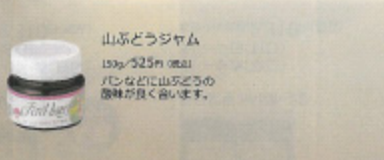 山ぶどうジャム
150g／525円（税込）
パンなどに山ぶどうの
酸味が良く合います。